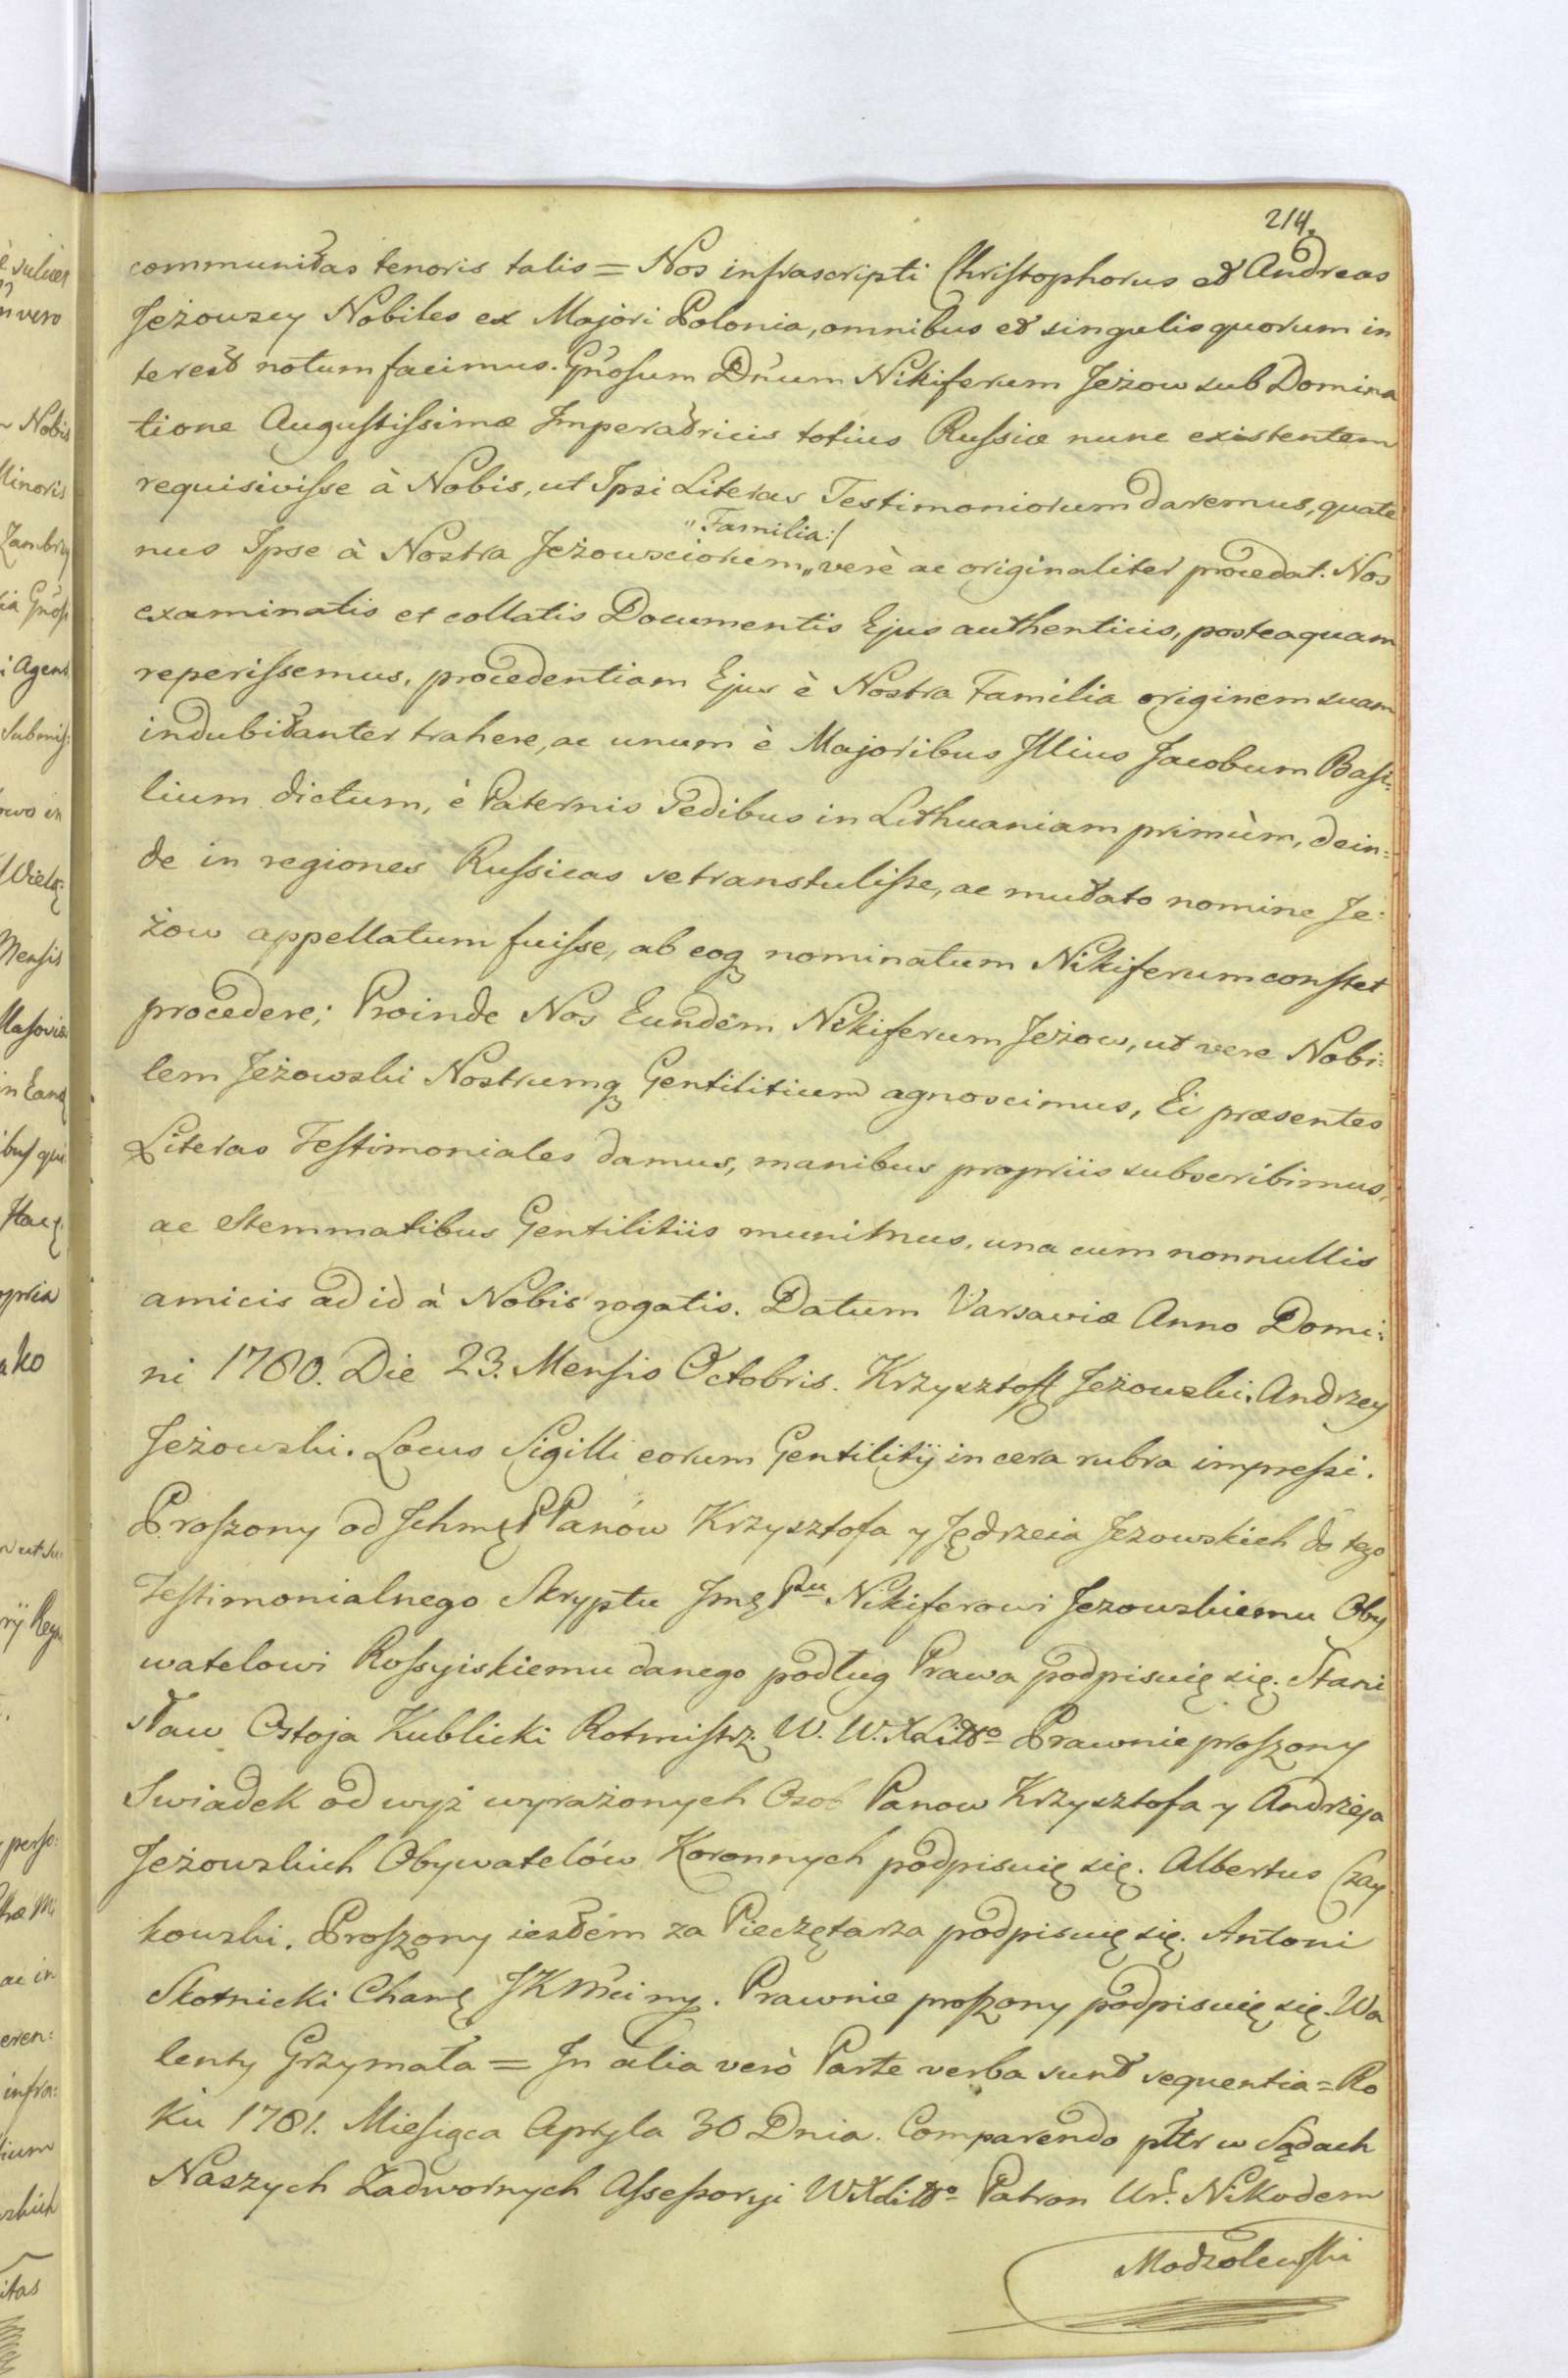 214.
communitas tenoris talis = Nos infrascripti Christophorus et Andreas
Jeżowscy Nobiles ex Majori Polonia, omnibus et singulis quorum in
terest notum facimus. Gnosum Dnum Nikiferum Jeżow sub Domina
tione Augustissimæ Imperatricis totius Russiæ nunc existentem
requisivisse à Nobis, ut Ipsi Literas Testimoniorum daremus, quate
„Familia:/
nus Ipse à Nostra Jeżowsciorum„ verè ac originaliter procedat. Nos
examinatis et collatis Documentis Ejus authenticis, posteaquam
reperissemus, procedentiam Ejus è Nostra Familia originem suam
indubitanter trahere, ac unum è Majoribus Illius Jacobum Basi:
lium dictum, è Paternis Sedibus in Lithuaniam primùm, dein=
de in regiones Russicas se transtulisse, ac mutato nomine Je:
żow appellatum fuisse, ab eoq nominatum Nikiferum constet
procedere; Proinde Nos Eundem Nikiferum Jeżow, ut vere Nobi:
lem Jeżowski Nostrumq Gentilitium agnoscimus, Ei præsentes
Literas Testimoniales damus, manibus propriis subscribimus,
ac Stemmatibus Gentilitiis munimus, una cum nonnullis
amicis ad id à Nobis rogatis. Datum Varsaviæ Anno Domi:
ni 1780. Die 23. Mensis Octobris. Krzysztoff Jeżowski. Andrzey
Jeżowski. Locus Sigilli eorum Gentilitij in cera rubra impressi.
Proszony od Ichmę PPanów Krzysztofa y Jędrzeia Jezowskich do tego
Testimonialnego Skryptu Jmę Pnu Nikiferowi Jezowskiemu Oby
watelowi Rossyiskiemu danego podług Prawa podpisuię się. Stani
sław Ostoja Kublicki Rotmistrz W. W. X Litto Prawnie proszony
Swiadek od wyż wyrażonych Osob Panow Krzysztofa y Andrzeja
Jeżowskich Obywatelów Koronnych podpisuię się. Albertus Czay
kowski. Proszony iestém za Pieczętarza podpisuię się. Antoni
Skotnicki JKMci. Prawnie proszony podpisuię się. Wa
lenty Grzymała = In alia verò Parte verba sunt sequentia = Ro
ku 1781. Miesiąca Apryla 30 Dnia. Comparendo pltr w Sądach
Naszych Zadwornych Assessoryi WXLitto Patron Ur. Nikodem
Modzolewski